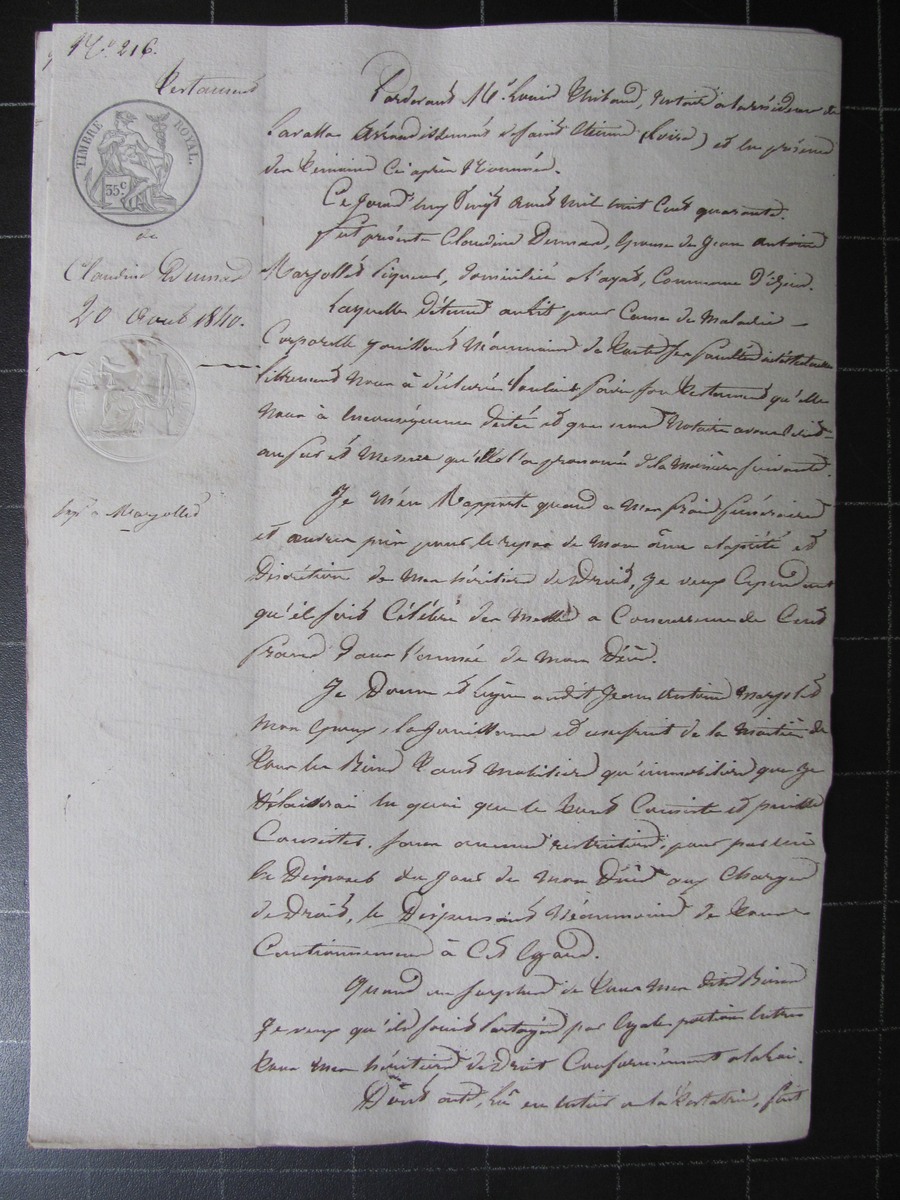 N° 216.
Testament
TIMBRE ROYAL.
35 c.
de
Claudine Demard
20 Aout 1840.
Expé a Marjollet
Pardevant Me Louis Thibaud, Notaire a la résidence de
Lavalla Arrondissement de Saint Etienne (Loire) et en présence
des témoins ci après Nommés.
Ce jourd'huy Vingt Aout mil huit Cent quarante.
fut présente Claudine Demard, Epouse de Jean Antoine
Marjollet Ligneur, domiciliée a Layat, Commune D'izieu.
Laquelle détenue au lit pour Cause de Maladie
Corporelle jouissant Néanmoins de toutes ses facultés intellectuelles
librement Nous à déclaré Vouloir faire son Testament qu'elle
Nous à en conséquence dicté et que nous Notaire avons écrit
au fur et Mesure qu'elle l'a prononcé de la Manière suivante.
Je m'en Rapporte quand a Mes frais funéraires
et œuvres pies pour le repos de Mon âme a la piété et
Discrétion de Mes héritiers de Droit, Je veux Cependant
qu'il soit Célébré des Messes a Concurrence de Cent
francs dans l'année de Mon Décès.
Je Donne et Lègue audit Jean Antoine Marjollet
Mon Epoux, la Jouissance et usufruit de la Moitié de
tous les Biens tant Mobiliers qu'immobiliers que Je
Délaisserai en quoi que le tout Consiste et puisse
Consister. Sans aucune restriction, pour par lui
en Disposer du jour de Mon Décès aux Charges
de Droit, le Dispensant Néanmoins de tout
Cautionnement à Cet Egard.
Quand au surplus de tous Mes dits Biens
Je veux qu'ils soient Partagés par Egales portions Entre
tous Mes héritiers de Droit Conformément a la Loi.
Dont acte, Lû en entier a la Testatrice, fait